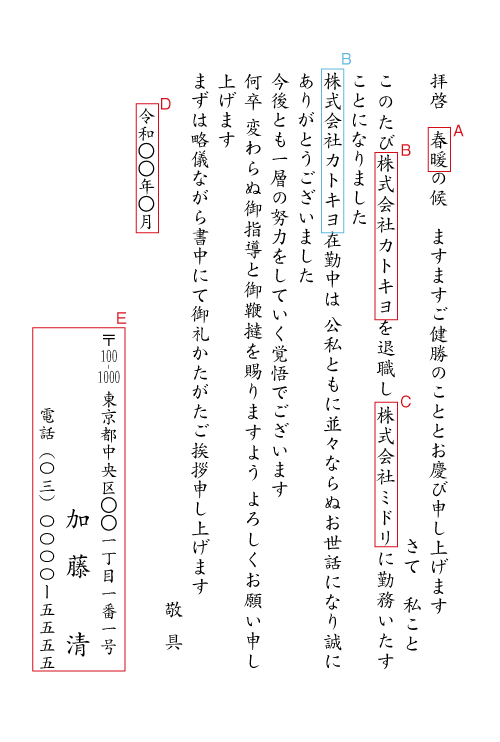 拝啓　春暖の候　ますますご健勝のこととお慶び申し上げます
A
さて　私こと
このたび株式会社カトキヨを退職し株式会社ミドリに勤務いたす
B
C
ことになりました
株式会社カトキヨ在勤中は　公私ともに並々ならぬお世話になり誠に
B
ありがとうございました
今後とも一層の努力をしていく覚悟でございます
何卒　変わらぬ御指導と御鞭撻を賜りますよう　よろしくお願い申し
上げます
まずは略儀ながら書中にて御礼かたがたご挨拶申し上げます
敬具
令和〇〇年〇月
D
E
〒100-1000　東京都中央区〇〇一丁目一番一号
加藤　清
電話（〇三）〇〇〇〇ー五五五五